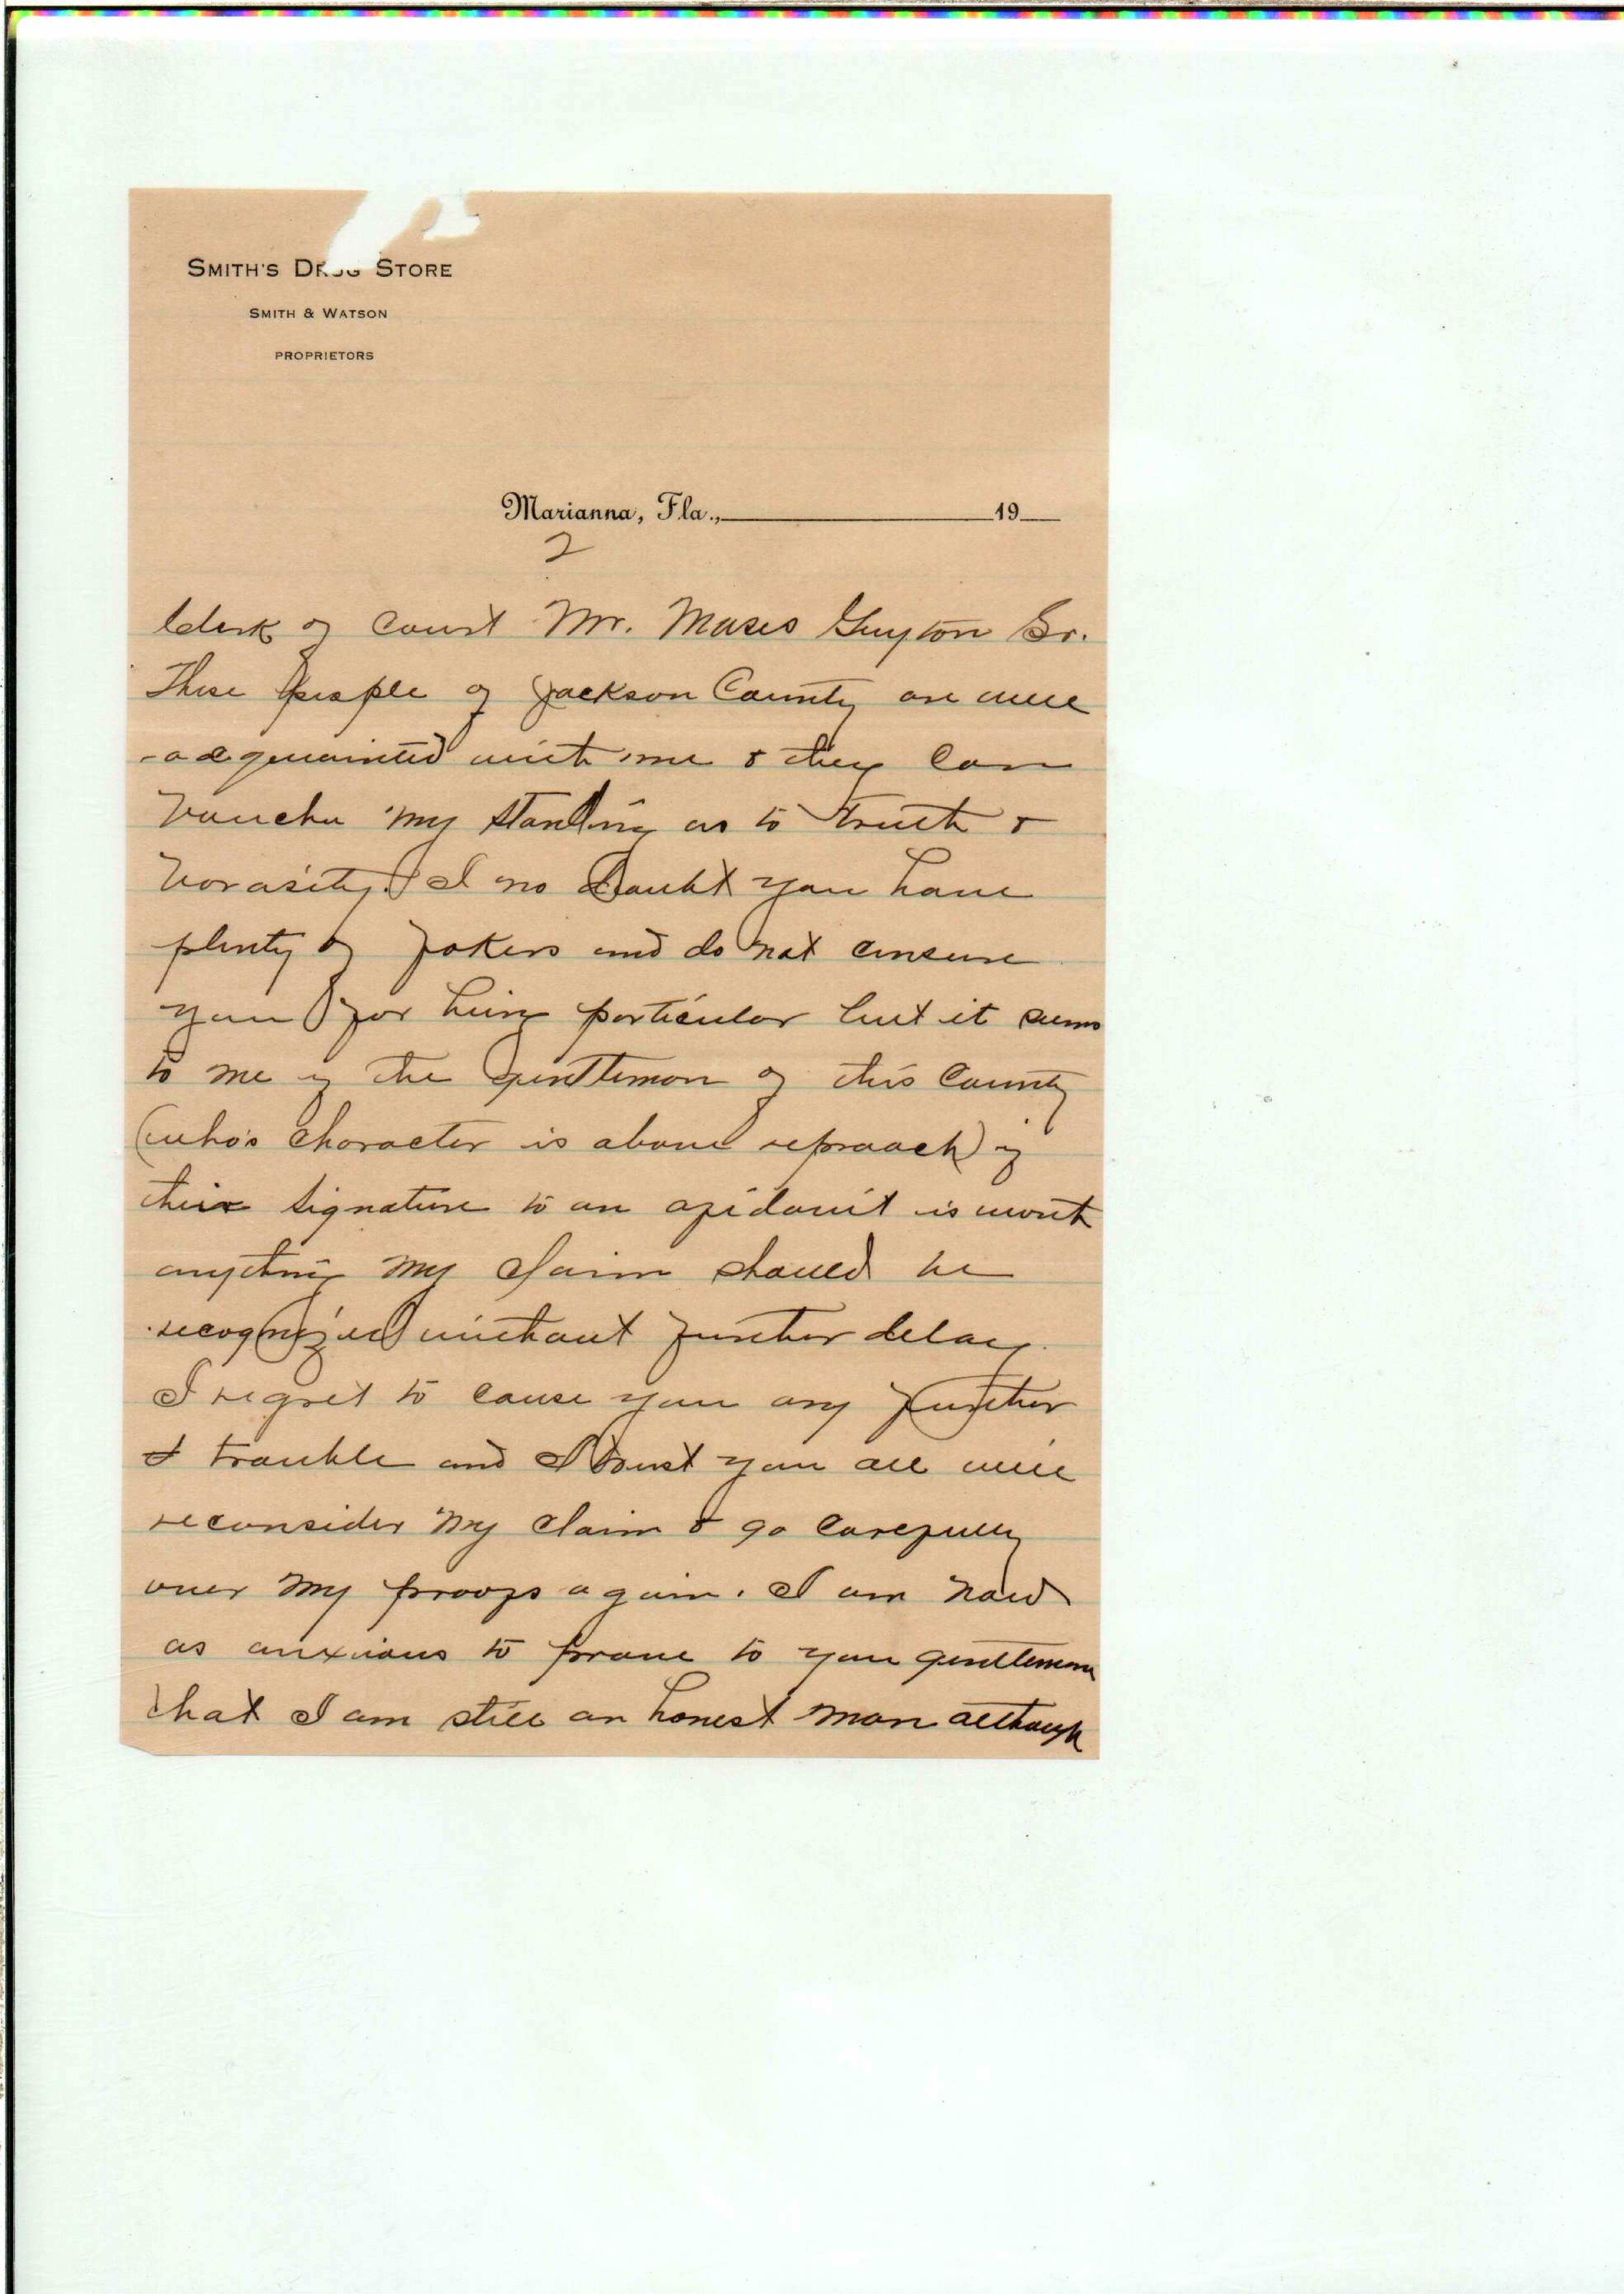 SMITH'S DRUG STORE
SMITH & WATSON
PROPRIETORS
Marianna, Fla., 19
2
Clerk of Court Mr. Moses Guyton Sr.
These people of Jackson County are well
-acquainted with me & they can
voucher my standing as to truth &
vorasity. I no doubt you have
plenty of jokers and do not censure
you for being particular but it seems
to me if the gentlemon of this County
(who's character is above reproach) if
their signature to an afidavit is worth
anything my claim should be
recognized without further delay.
I regret to cause you any further
& trouble and I trust you all will
reconsider my claim & go carefully
over my proofs again. I am now
as anxious to prove to you gentlemen
that I am still an honest man although